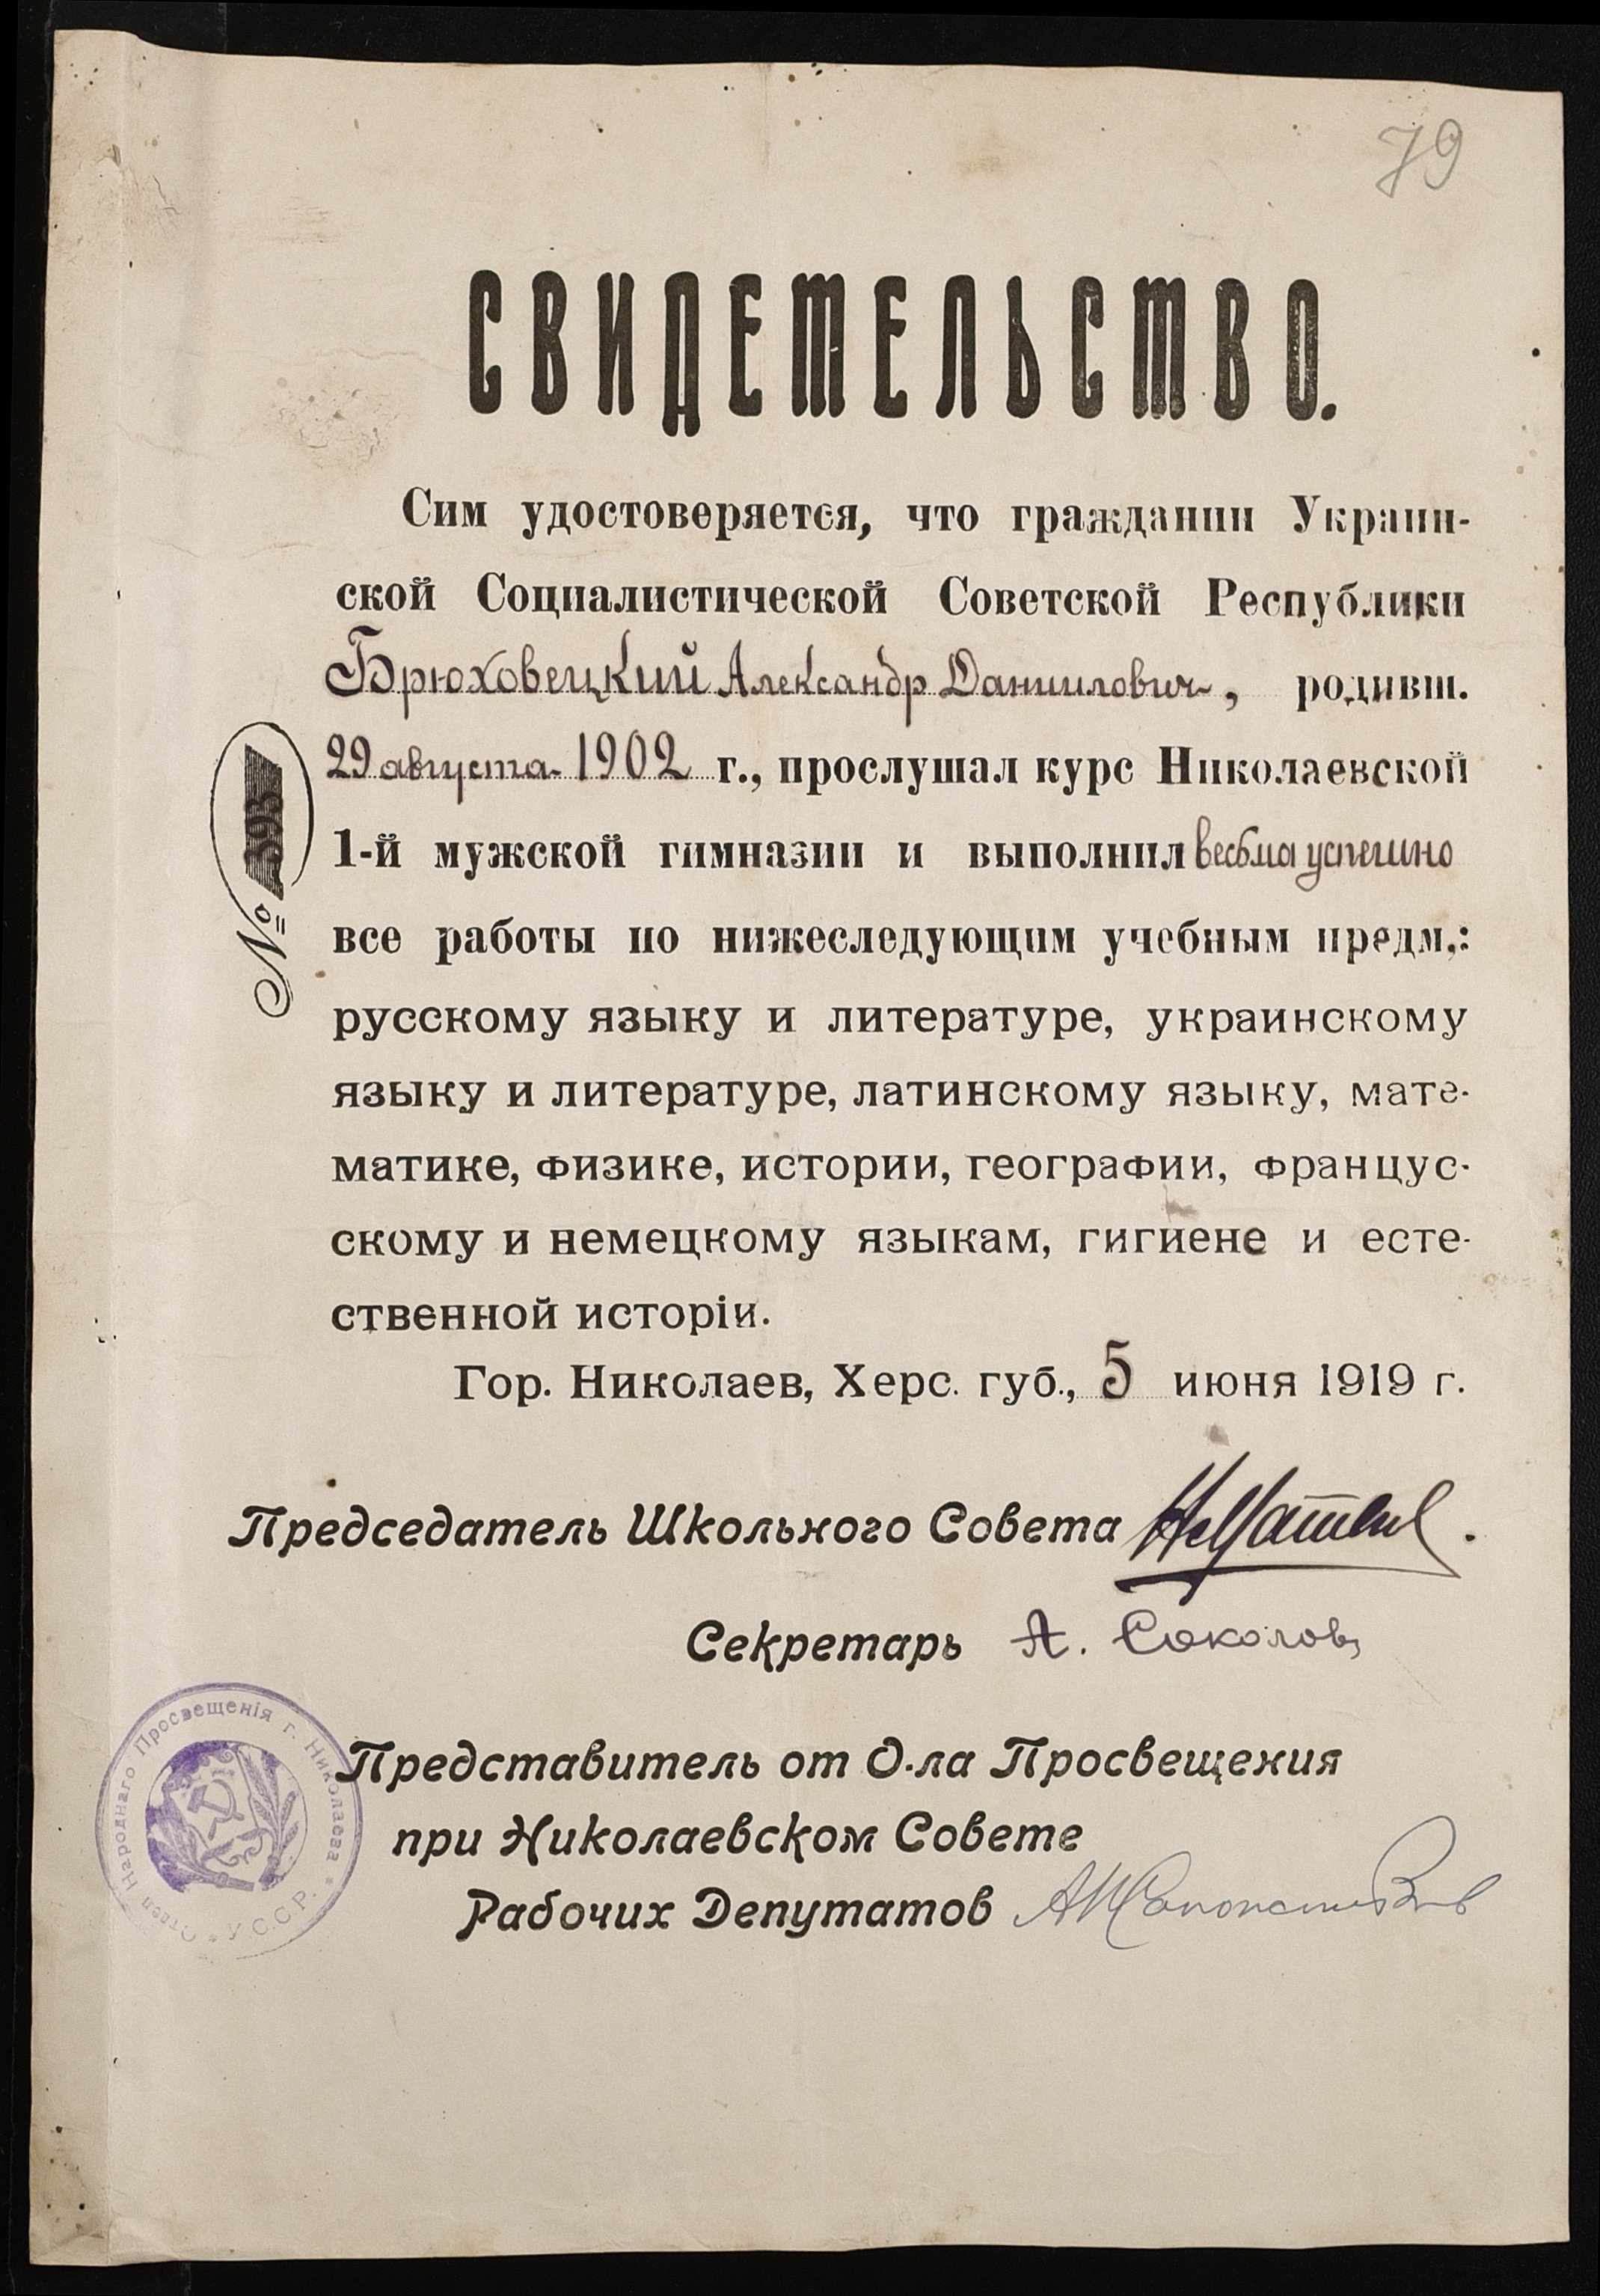 79
СВИДЕТЕЛЬСТВО.
Сим удостоверяется, что гражданин Украин-
ской Социалистической Советской Республики
Брюховецкий Александр Даниилович, родивш.
29 августа 1902 г., прослушал курс Николаевской
1-й мужской гимназии и выполнил весьма успешно
все работы по нижеследующим учебным предм.:
русскому языку и литературе, украинскому
языку и литературе, латинскому языку, мате-
матике, физике, истории, географии, француз-
скому и немецкому языкам, гигиене и есте-
ственной исторіи.
Гор. Николаев, Херс. губ., 5 июня 1919 г.
№ 393
Председатель Школьного Совета
Секретарь А. Соколов
Представитель от О-ла Просвещения
при Николаевском Совете
Рабочих Депутатов
Отдел Народнаго Просвещенія г. Николаева * У.С.С.Р. *